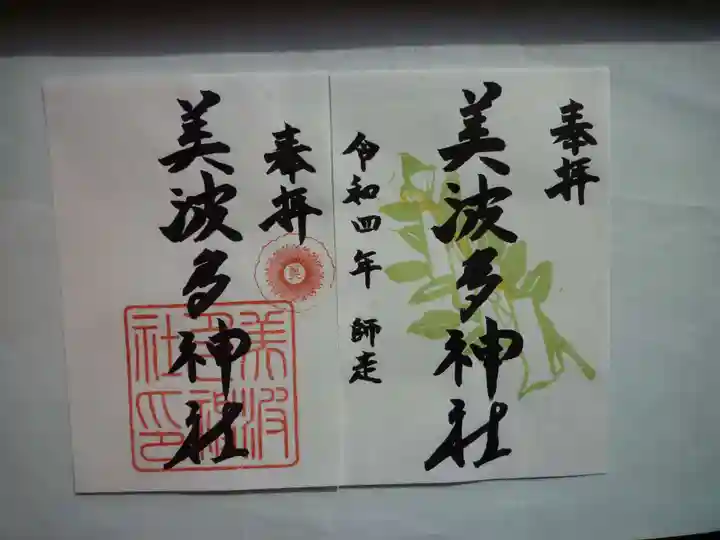 奉拝
美波多神社
令和四年 師走
奉拝
美波多神社
美波
多神
社印